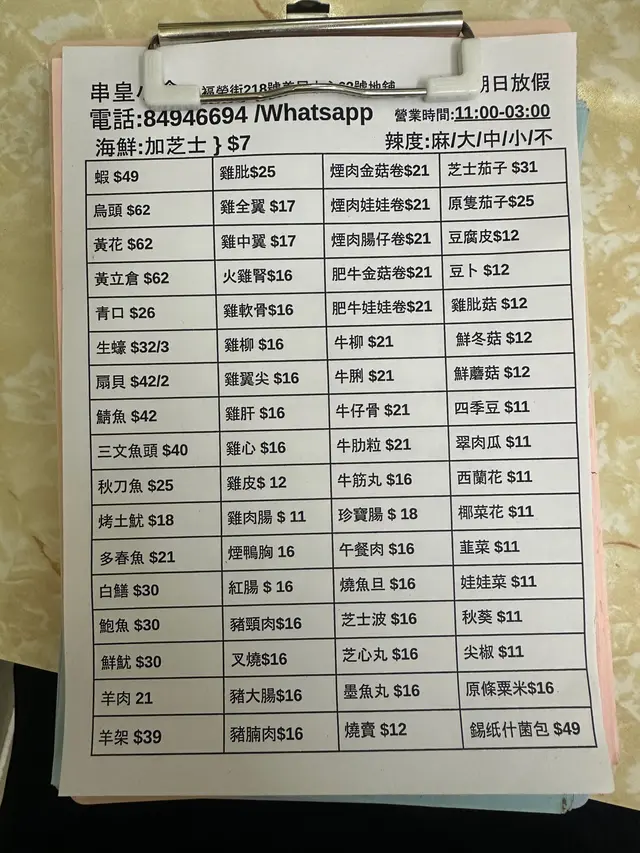 串皇小 福榮街218號 號地鋪 期日放假
電話:84946694 /Whatsapp 營業時間:11:00-03:00
海鮮:加芝士 } $7 辣度:麻/大/中/小/不
蝦 $49 雞肶$25 煙肉金菇卷$21 芝士茄子 $31
烏頭 $62 雞全翼 $17 煙肉娃娃卷$21 原隻茄子$25
黃花 $62 雞中翼 $17 煙肉腸仔卷$21 豆腐皮$12
黃立倉 $62 火雞腎$16 肥牛金菇卷$21 豆卜 $12
青口 $26 雞軟骨$16 肥牛娃娃卷$21 雞肶菇 $12
生蠔 $32/3 雞柳 $16 牛柳 $21 鮮冬菇 $12
扇貝 $42/2 雞翼尖 $16 牛脷 $21 鮮蘑菇 $12
鯖魚 $42 雞肝 $16 牛仔骨 $21 四季豆 $11
三文魚頭 $40 雞心 $16 牛肋粒 $21 翠肉瓜 $11
秋刀魚 $25 雞皮$ 12 牛筋丸 $16 西蘭花 $11
烤土魷 $18 雞肉腸 $ 11 珍寶腸 $ 18 椰菜花 $11
多春魚 $21 煙鴨胸 16 午餐肉 $16 韮菜 $11
白鱔 $30 紅腸 $ 16 燒魚旦 $16 娃娃菜 $11
鮑魚 $30 豬頸肉$16 芝士波 $16 秋葵 $11
鮮魷 $30 叉燒$16 芝心丸 $16 尖椒 $11
羊肉 21 豬大腸$16 墨魚丸 $16 原條粟米$16
羊架 $39 豬腩肉$16 燒賣 $12 錫纸什菌包 $49